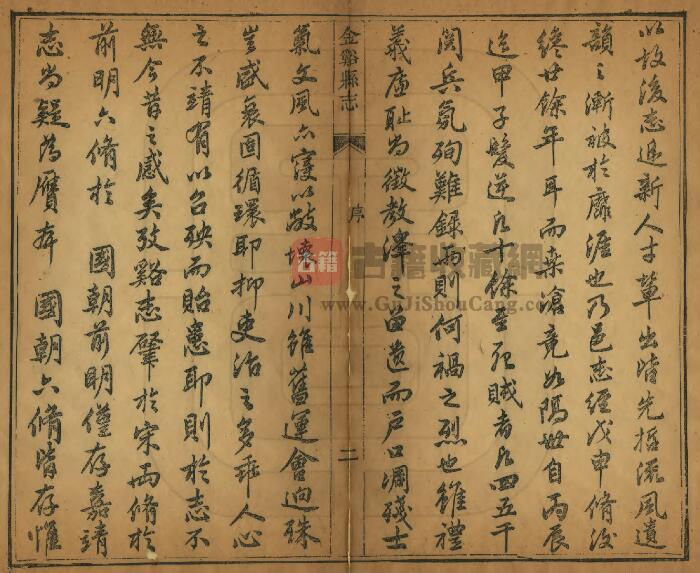 以故後志遞新人才輩出皆先哲流風遺
韻之漸被於靡涯也乃邑志經戊申脩後
纔廿餘年耳而桑滄竟如隔世自丙辰
迄甲子髮逆凡十餘至死賊者凡四五千
閱兵氛殉難錄而則何禍之烈也雖禮
義廉恥為徵教澤之留遺而戶口凋殘士
金谿縣志
序
二
氣文風亦寖以敝壞山川雖舊運會迥殊
豈感衰固循環耶抑吏治之多乖人心
之不靖有以召殃而貽患耶則於志不
無今昔之感矣攷谿志肇於宋而脩於
前明六脩於 國朝前明僅存嘉靖
志尚疑為贗本 國朝六脩皆存惟
古籍收藏網
www.GuJiShouCang.com
古籍